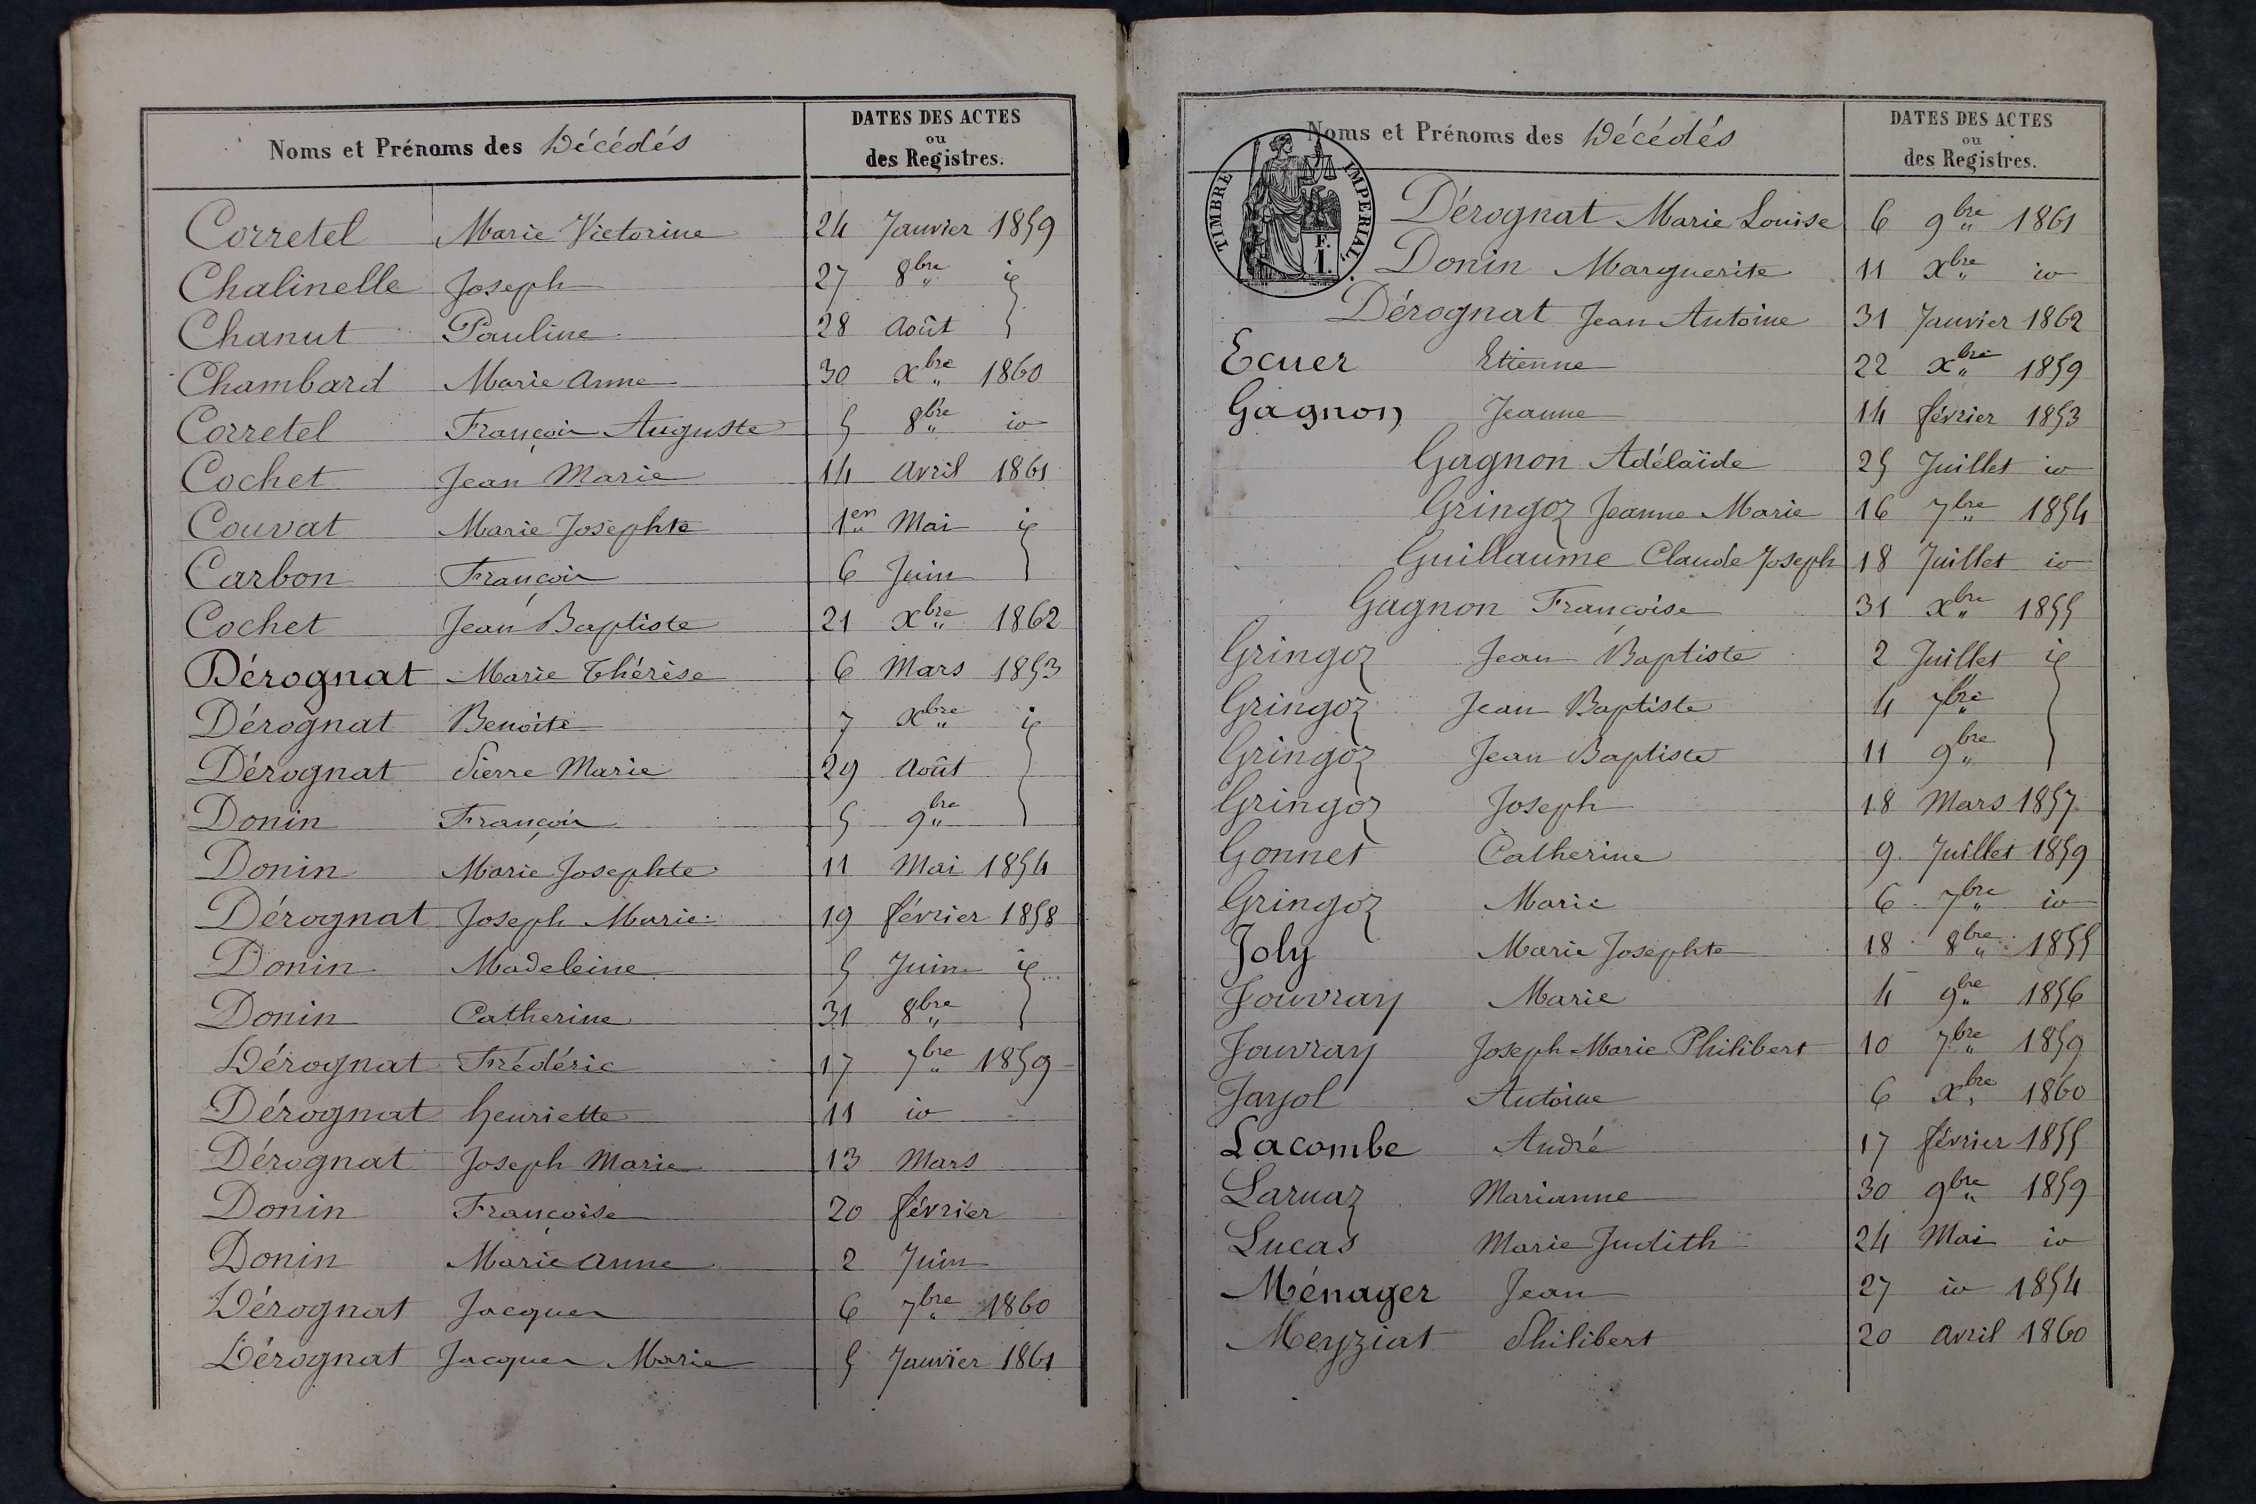 Noms et Prénoms des Décédés
DATES DES ACTES
ou
des Registres.
Corretel Marie Victorine 24 Janvier 1859
Chalinelle Joseph 27 8bre id
Chanut Pauline 28 Août
Chambard Marie Anne 30 Xbre 1860
Corretel François Auguste 5 8bre id
Cochet Jean Marie 14 Avril 1861
Couvat Marie Josephte 1er Mai id
Carbon François 6 Juin
Cochet Jean Baptiste 21 Xbre 1862
Dérognat Marie Thérèse 6 Mars 1853
Dérognat Benoite 7 Xbre id
Dérognat Pierre Marie 29 Août
Donin François 5 9bre
Donin Marie Josephte 11 Mai 1854
Dérognat Joseph Marie 19 février 1858
Donin Madeleine 5 Juin id
Donin Catherine 31 8bre
Dérognat Frédéric 17 7bre 1859
Dérognat henriette 11 id
Dérognat Joseph Marie 13 Mars
Donin Françoise 20 février
Donin Marie Anne 2 Juin
Dérognat Jacques 6 7bre 1860
Dérognat Jacques Marie 5 Janvier 1861
Noms et Prénoms des Décédés
DATES DES ACTES
ou
des Registres.
TIMBRE IMPERIAL
F.
I.
Dérognat Marie Louise 6 9bre 1861
Donin Marguerite 11 Xbre id
Dérognat Jean Antoine 31 Janvier 1862
Ecuer Etienne 22 Xbre 1859
Gagnon Jeanne 14 février 1853
Gagnon Adélaïde 25 Juillet id
Gringoz Jeanne Marie 16 7bre 1854
Guillaume Claude Joseph 18 Juillet id
Gagnon Françoise 31 Xbre 1855
Gringoz Jean Baptiste 2 Juillet id
Gringoz Jean Baptiste 4 7bre
Gringoz Jean Baptiste 11 9bre
Gringoz Joseph 18 Mars 1857
Gonnet Catherine 9 Juillet 1859
Gringoz Marie 6 7bre id
Joly Marie Josephte 18 8bre 1855
Jouvray Marie 4 9bre 1856
Jouvray Joseph Marie Philibert 10 7bre 1859
Jayol Antoine 6 Xbre 1860
Lacombe André 17 février 1855
Laruaz Marianne 30 9bre 1859
Lucas Marie Judith 24 Mai id
Ménager Jean 27 id 1854
Meyziat Philibert 20 Avril 1860